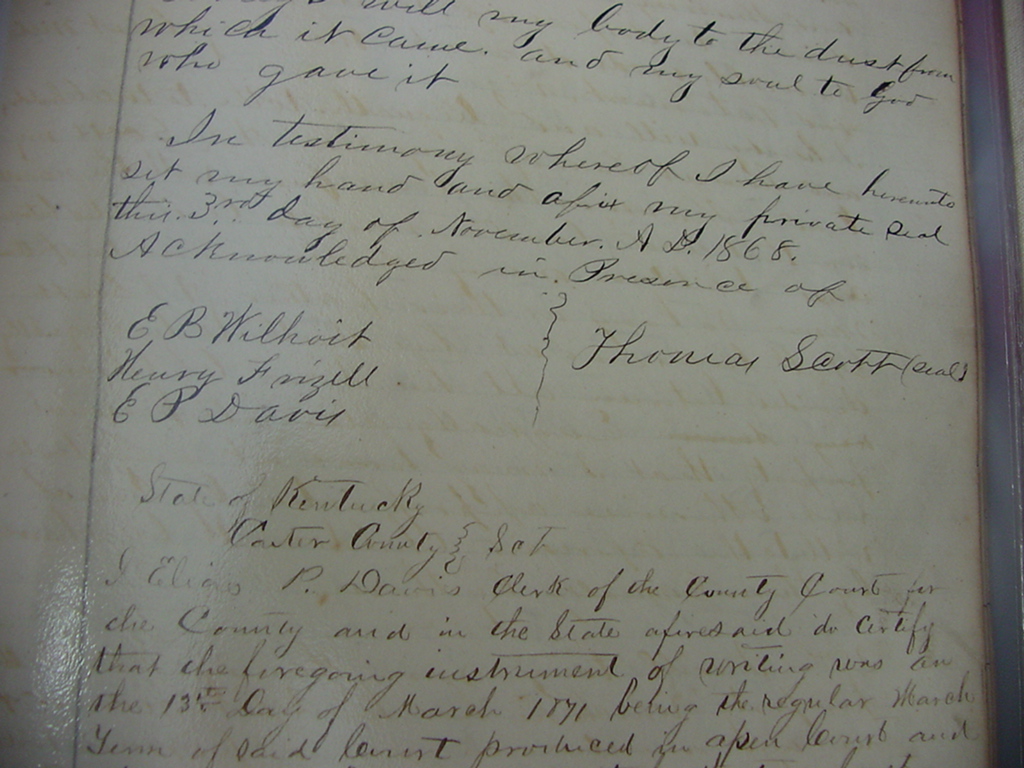 will my body to the dust from
which it came. and my soul to God
who gave it
In testimony whereof I have hereunto
set my hand and afix my private seal
this 3rd day of November. A D. 1868.
Acknowledged in Presence of
E B Wilhoit
Henry Frizell
E P Davis
Thomas Scott (seal)
State of Kentucky
Carter County } Sct
I Elias P. Davis Clerk of the County Court for
the County and in the State aforesaid do certify
that the foregoing instrument of writing was on
the 13th Day of March 1871 being the regular March
Term of said Court produced in open Court and